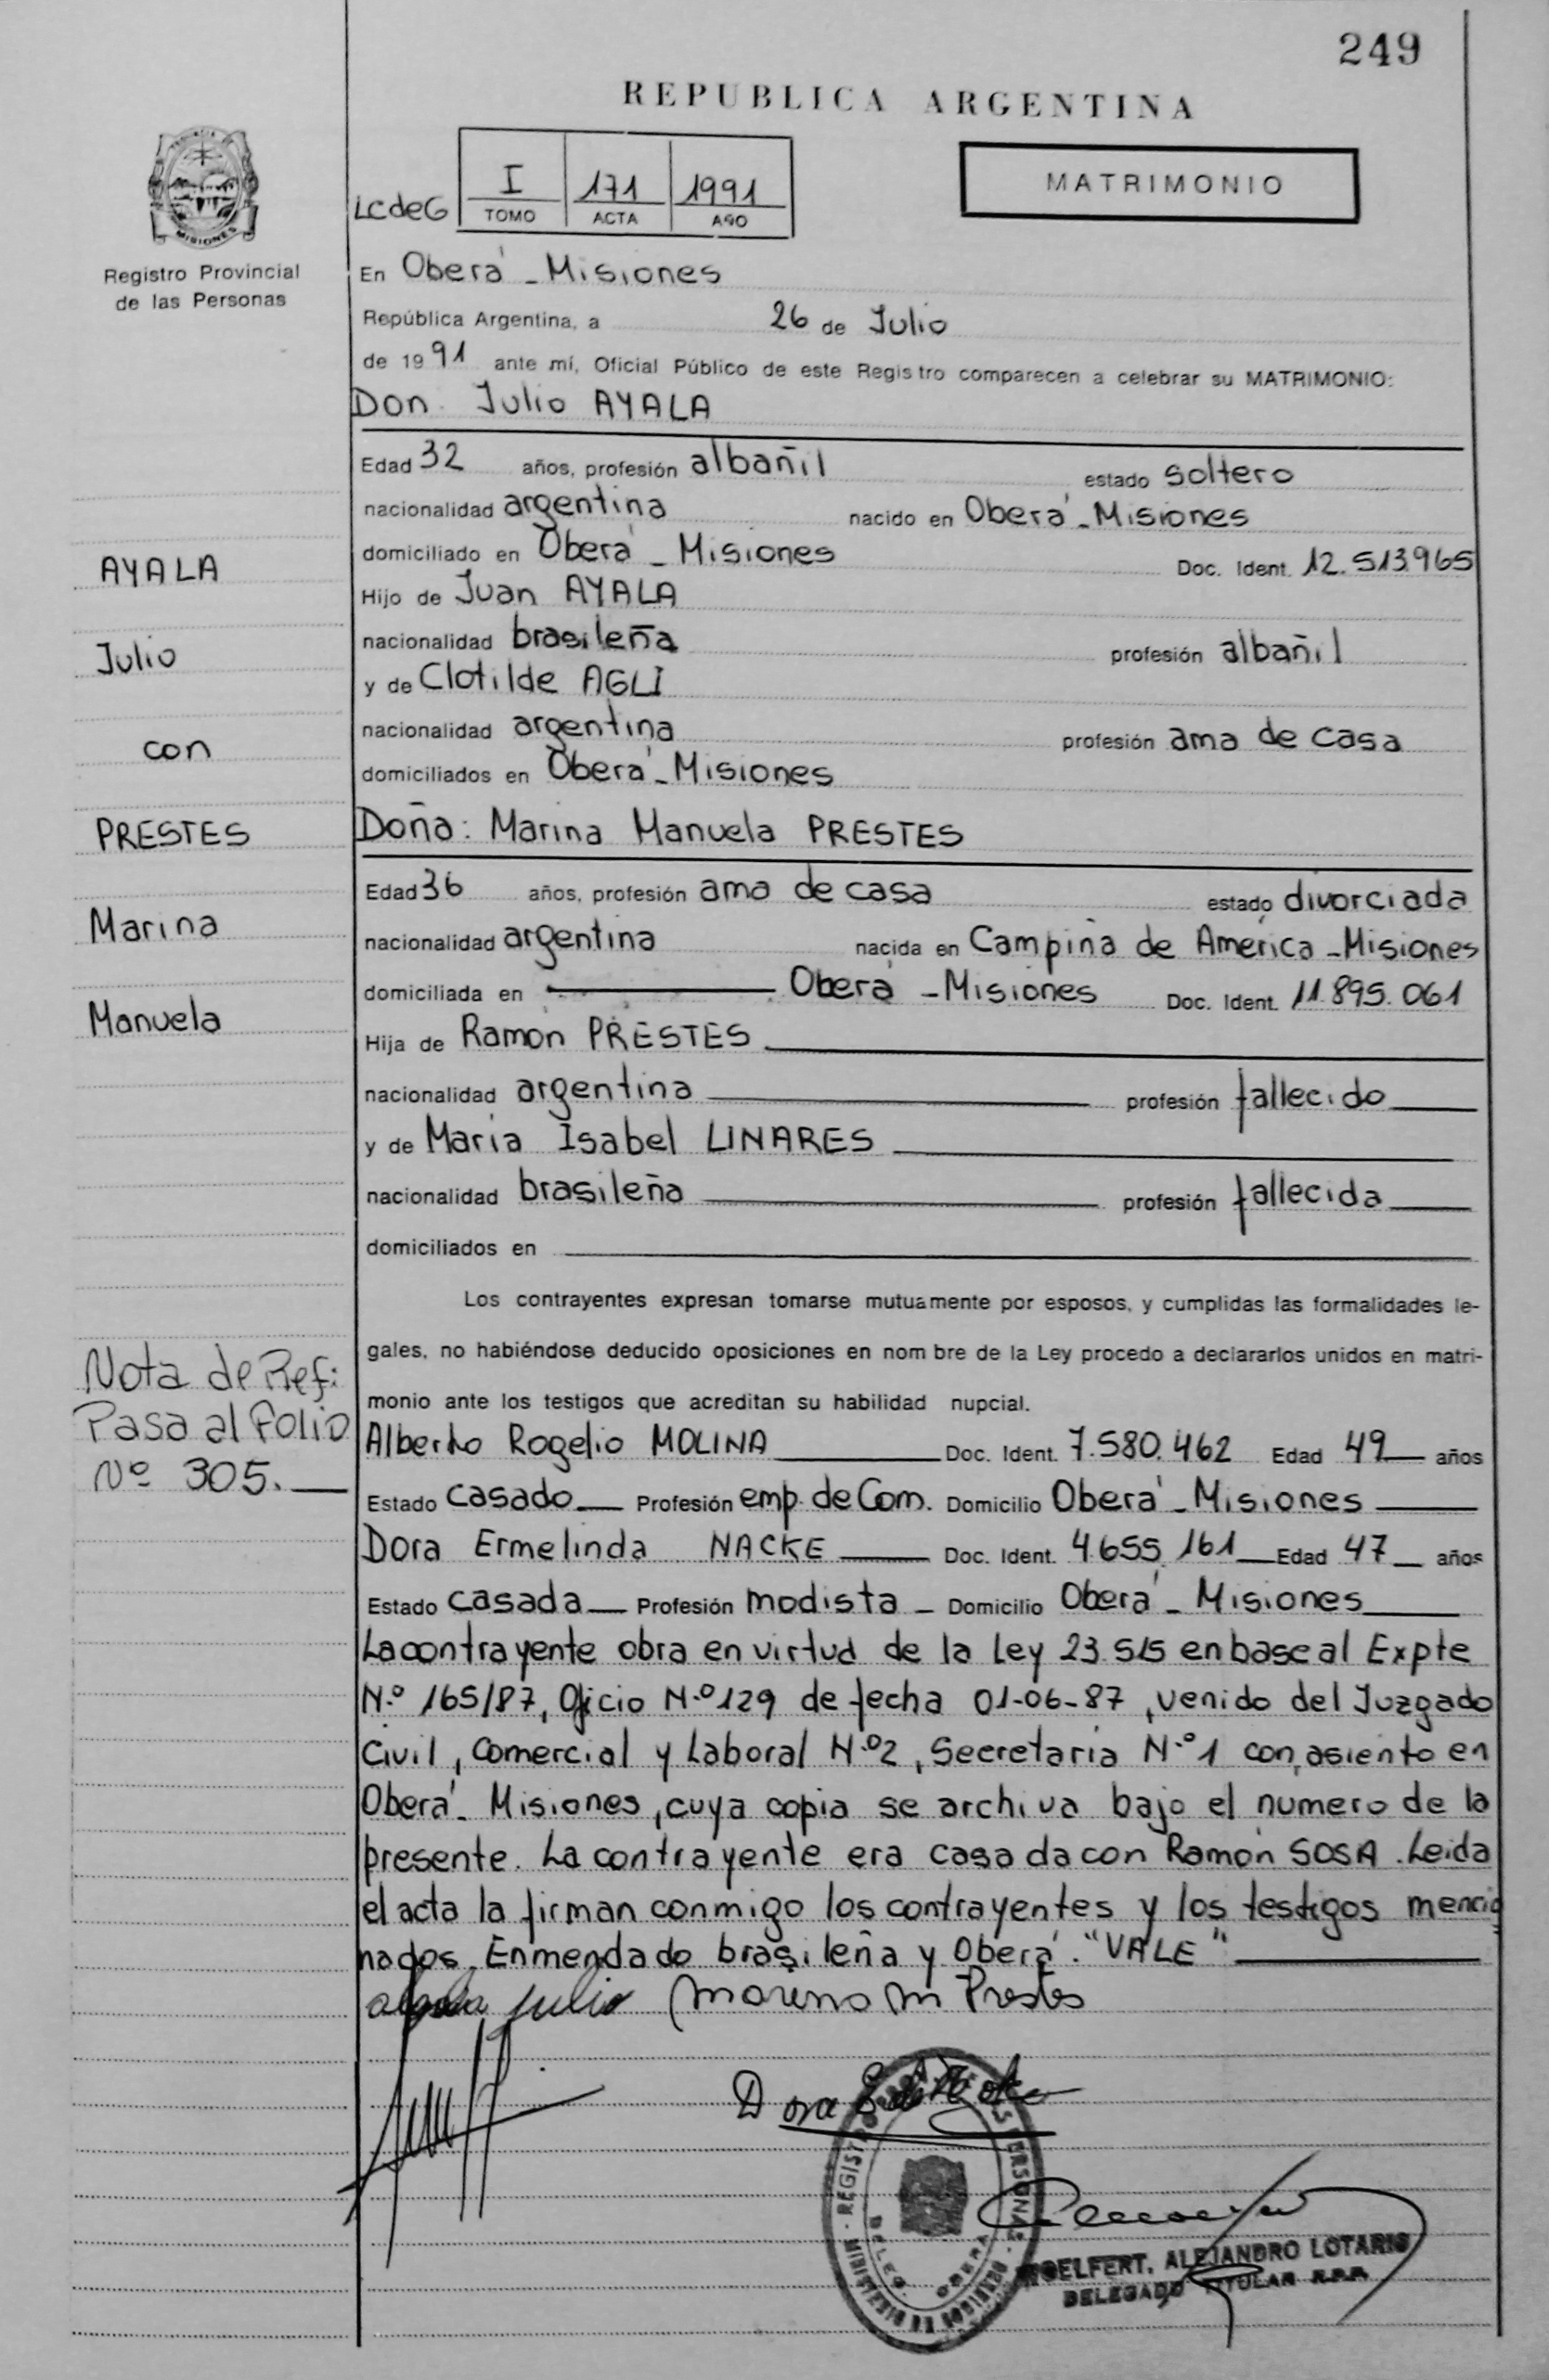 249
REPUBLICA ARGENTINA
MISIONES
Registro Provincial
de las Personas
LCdeG
I 171 1991
TOMO ACTA AÑO
MATRIMONIO
En Oberá - Misiones
República Argentina, a 26 de Julio
de 1991 ante mí, Oficial Público de este Registro comparecen a celebrar su MATRIMONIO:
Don Julio AYALA
Edad 32 años, profesión albañil estado soltero
nacionalidad argentina nacido en Oberá - Misiones
domiciliado en Oberá - Misiones Doc. Ident. 12.513.965
Hijo de Juan AYALA
nacionalidad brasileña profesión albañil
y de Clotilde AGLI
nacionalidad argentina profesión ama de casa
domiciliados en Oberá - Misiones
Doña: Marina Manuela PRESTES
Edad 36 años, profesión ama de casa estado divorciada
nacionalidad argentina nacida en Campiña de América - Misiones
domiciliada en Oberá - Misiones Doc. Ident. 11.895.061
Hija de Ramón PRESTES
nacionalidad argentina profesión fallecido
y de María Isabel LINARES
nacionalidad brasileña profesión fallecida
domiciliados en
Los contrayentes expresan tomarse mutuamente por esposos, y cumplidas las formalidades le-
gales, no habiéndose deducido oposiciones en nombre de la Ley procedo a declararlos unidos en matri-
monio ante los testigos que acreditan su habilidad nupcial.
Alberto Rogelio MOLINA Doc. Ident. 7.580.462 Edad 49 años
Estado casado Profesión emp. de Com. Domicilio Oberá - Misiones
Dora Ermelinda NACKE Doc. Ident. 4.655.161 Edad 47 años
Estado casada Profesión modista - Domicilio Oberá - Misiones
La contrayente obra en virtud de la Ley 23.515 en base al Expte
N.º 165/87, Oficio N.º 129 de fecha 01-06-87, venido del Juzgado
Civil, Comercial y Laboral N.º 2, Secretaria N.º 1 con asiento en
Oberá - Misiones, cuya copia se archiva bajo el numero de la
presente. La contrayente era casada con Ramón SOSA. Leida
el acta la firman conmigo los contrayentes y los testigos mencio
nados. Enmendado brasileña y Oberá. "VALE"
ayala julio
Prestes
Dora
AYALA
Julio
con
PRESTES
Marina
Manuela
Nota de Ref:
Pasa al Folio
Nº 305.
ALEJANDRO LOTARIO
DELEGADO TITULAR R.P.P.